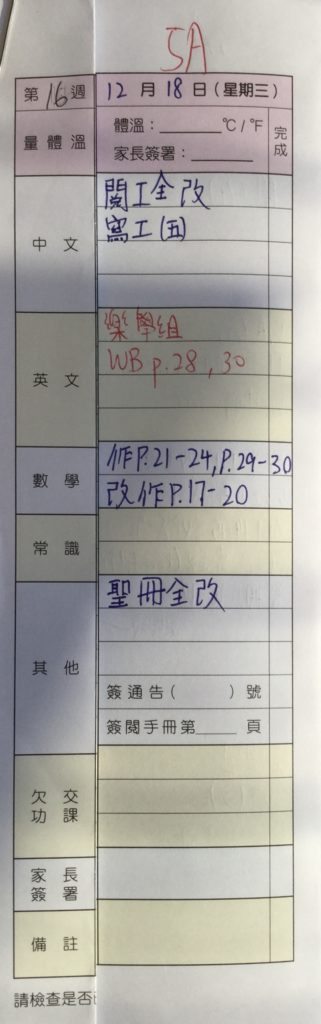 5A
第16週 12月18日(星期三)
量體溫 體溫：______℃/℉ 完成
家長簽署：______
中文 閱工全改
寫工(五)
英文 樂學組
WB p.28, 30
數學 作P.21-24, P.29-30
改作P.17-20
常識
其他 聖冊全改
簽通告( )號
簽閱手冊第____頁
欠交功課
家長簽署
備註
請檢查是否